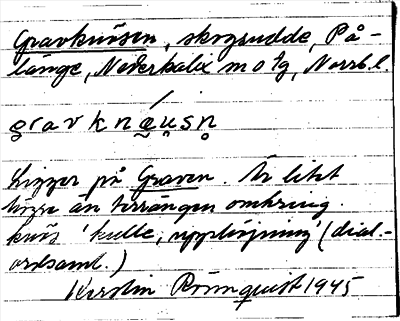 Gravknösen, skogsudde, På-
länge, Nederkalix m o tg, Norrb. l.
gravknœusn
Ligger på Graven. Är litet
högre än terrängen omkring.
knös 'kulle, upphöjning' (dial.-
ordsaml.)
Kerstin Rönnquist 1945